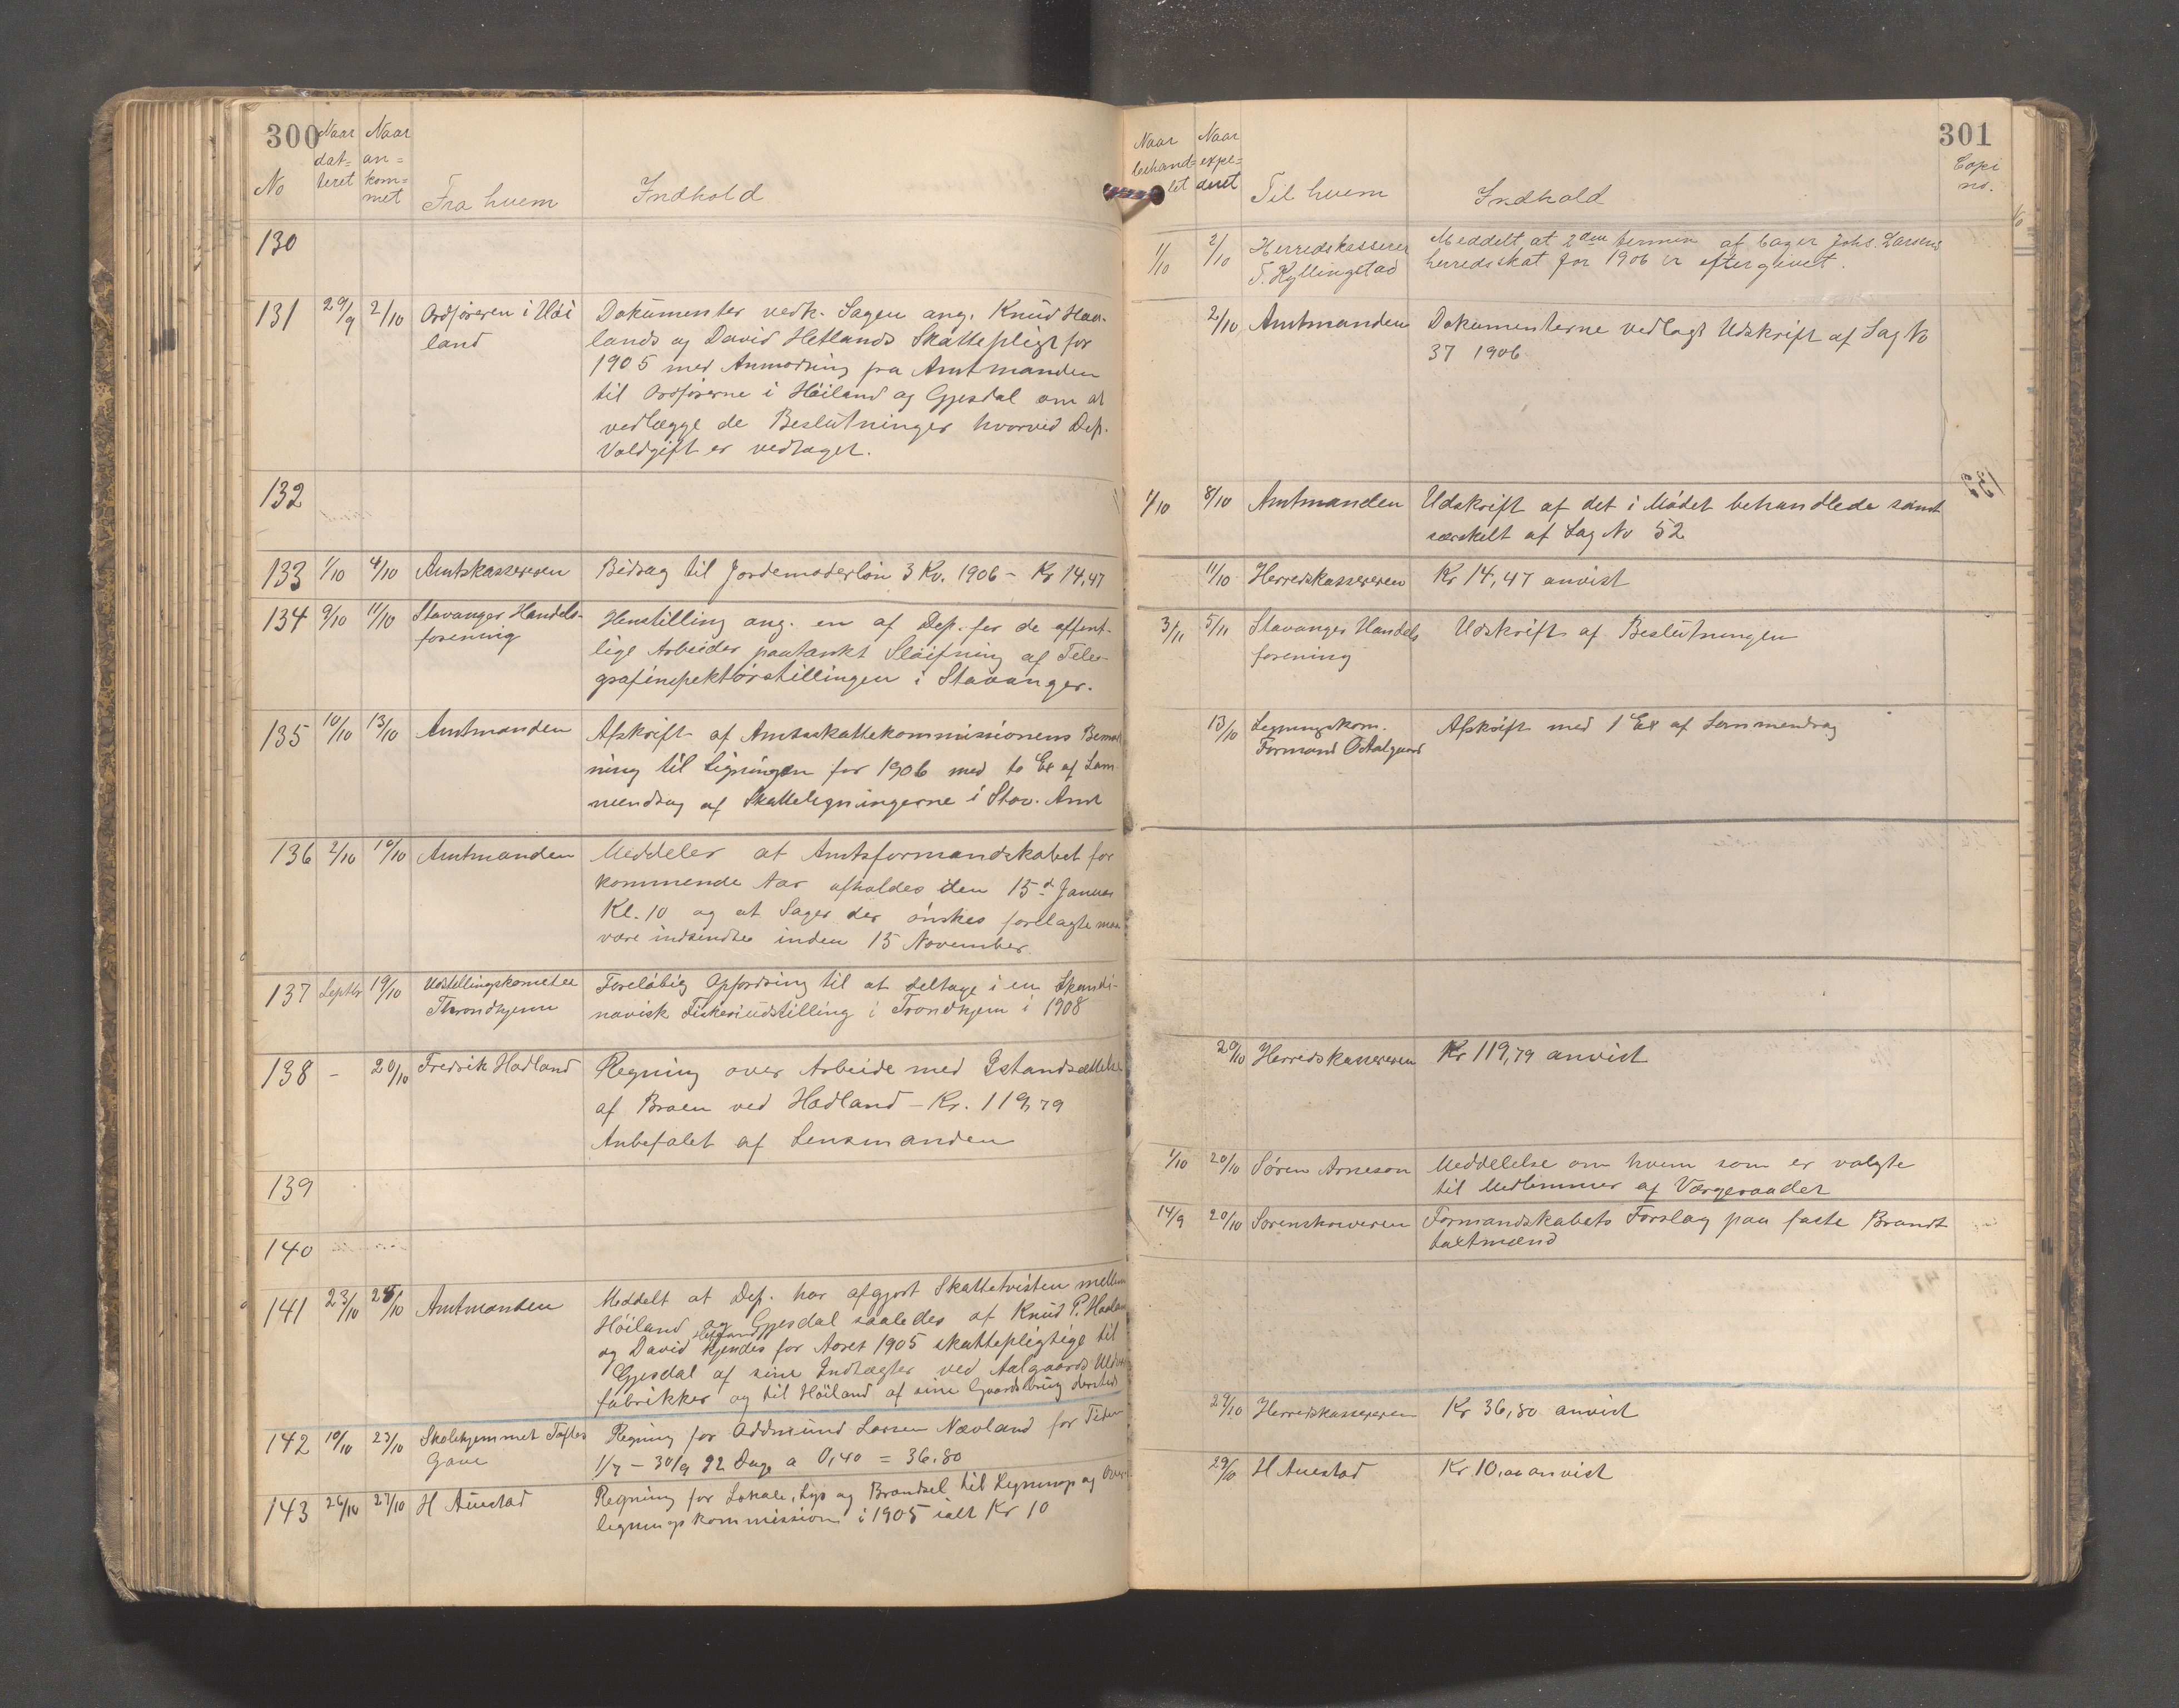 300
No
Naar
dat=
teret
Naar
an=
kom=
met
Fra hvem
Indhold
130
131 29/9 2/10 Ordføreren i Høi
land
Dokumenter vedk. Sagen ang. Knud Haa-
lands og David Hetlands Skattepligt for
1905 med Anmodning fra Amtmanden
til Ordførerne i Høiland og Gjesdal om at
vedlægge de Beslutninger hvorved Dep.
Voldgift er vedtaget.
132
133 1/10 4/10 Amtskassereren Bidrag til Jordemoderløn 3 Kv. 1906 - Kr 14,47
134 9/10 11/10 Stavanger Handels-
forening
Henstilling ang. en af Dep. for de offent-
lige Arbeider paatænkt Sløifning af Tele-
grafinspektørstillingen i Stavanger.
135 10/10 13/10 Amtmanden Afskrift af Amtsskattekommissionens
ning til Ligningen for 1906 med to Ex af Sam
mendrag af Skatteligningerne i Stav. Amt
136 2/10 10/10 Amtmanden Meddeler at Amtsformandskabet for
kommende Aar afholdes den 15d Januar
Kl. 10 og at Sager der ønskes forelagte maa
være indsendte inden 15 November.
137 Septbr 19/10 Udstillingskomiteen
Throndhjem
Foreløbig Opfordring til at deltage i en Skandi-
navisk Fiskeriudstilling i Trondhjem i 1908
138 - 20/10 Fredrik Hadland Regning over Arbeide med Istandsættelse
af Broen ved Hadland - Kr. 119,79
Anbefalet af Lensmanden
139
140
141 23/10 25/10 Amtmanden Meddelt at Dep. har afgjort Skattetvisten mellem
Høiland og Gjesdal saaledes at Knud P. Haaland
Hetland
og David kjendes for Aaret 1905 skattepligtige til
Gjesdal af sine Indtægter ved Aalgaards Uldvare
fabrikker og til Høiland af sine Gaardsbrug dersteds
142 19/10 23/10 Skolehjemmet Toftes
Gave
Regning for Oddmund Larsen Nævland for Tiden
1/7 - 30/9 92 Dage a 0,40 = 36.80
143 26/10 27/10 H Auestad Regning for Lokale, Lys og Brændsel til Lignings og Over
ligningskommission i 1905 ialt Kr 10
301
Naar
behand=
let
Naar
expe=
deret
Til hvem
Indhold
Copi
no.
1/10 2/10 Herredskasserer
T. Kyllingstad
Meddelt, at 2den termin af bager Johs. Larsens
herredsskat for 1906 er eftergivet.
2/10 Amtmanden Dokumenterne vedlagt Udskrift af Sag No
37 1906
1/10 8/10 Amtmanden Udskrift af det i Mødet behandlede samt
særskilt af Sag No 52
11/10 Herredskassereren Kr 14,47 anvist
3/11 5/11 Stavanger Handels
forening
Udskrift af Beslutningen
13/10 Ligningskom.
Formand Østalgaard
Afskrift med 1 Ex af Sammendrag
20/10 Herredskassereren Kr 119,79 anvist
1/10 20/10 Søren Arneson Meddelelse om hvem som er valgte
til Medlemmer af Værgeraadet
14/9 20/10 Sorenskriveren Formandskabets Forslag paa faste Brandt
taxtmænd
29/10 Herredskassereren Kr 36,80 anvist
29/10 H Auestad Kr 10,00 anvist